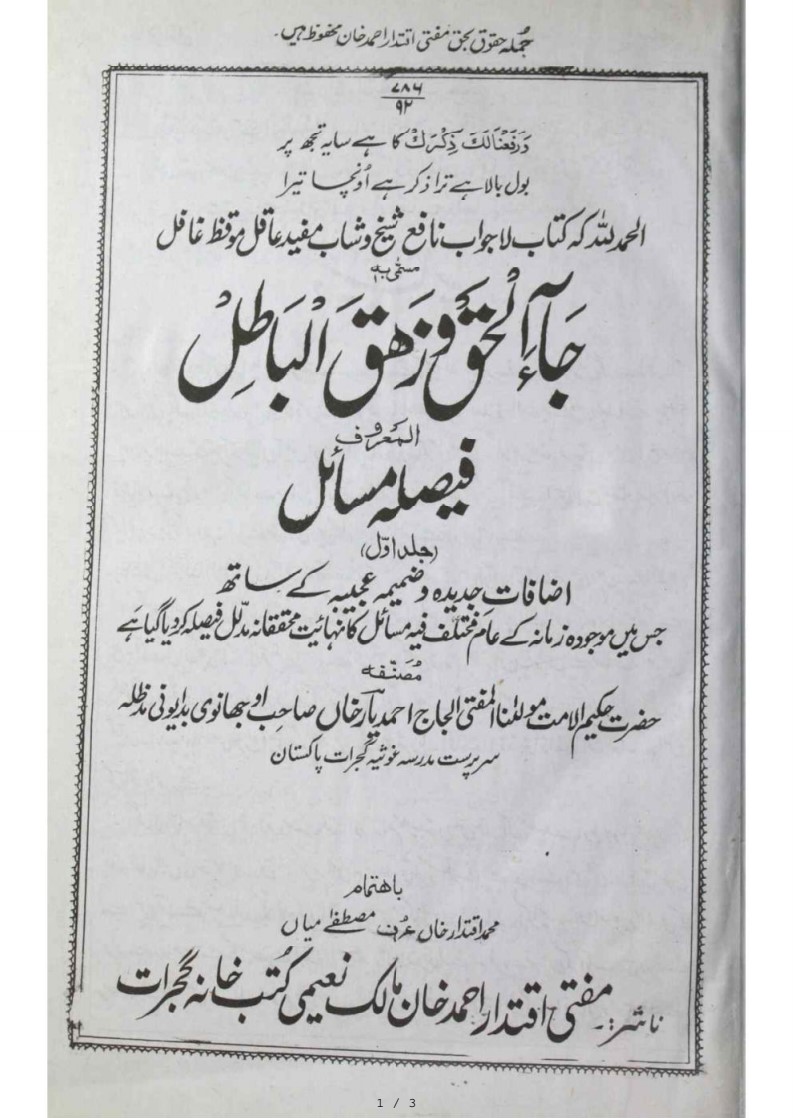 جُملہ حقوق بحق مفتی اقتدار احمد خان محفوظ ہیں۔
۷۸۶
۹۲
وَرَفَعْنَا لَكَ ذِكْرَكَ کا ہے سایہ تجھ پر
بول بالا ہے ترا ذکر ہے اُونچا تیرا
الحمد للہ کہ کتاب لاجواب نافع شیخ و شاب مفید عاقل موقظ غافل
مسمّٰی بہ
جَآءَ الْحَقُّ وَزَهَقَ الْبَاطِلْ
المعروف
فیصلہ مسائل
(جلد اوّل)
اضافات جدیدہ و ضمیمہ عجیبہ کے ساتھ
جس میں موجودہ زمانہ کے عام مختلف فیہ مسائل کا نہایت محققانہ مدلّل فیصلہ کر دیا گیا ہے
مُصنّفہ
حضرت حکیم الامت مولٰنا المفتی الحاج احمد یار خاں صاحب اوجھانوی بدایونی مدظلہ
سرپرست مدرسہ غوثیہ گجرات پاکستان
باھتمام
محمد اقتدار خاں عرف مصطفٰے میاں
ناشر:۔ مفتی اقتدار احمد خان مالک نعیمی کُتب خانہ گجرات
1 / 3